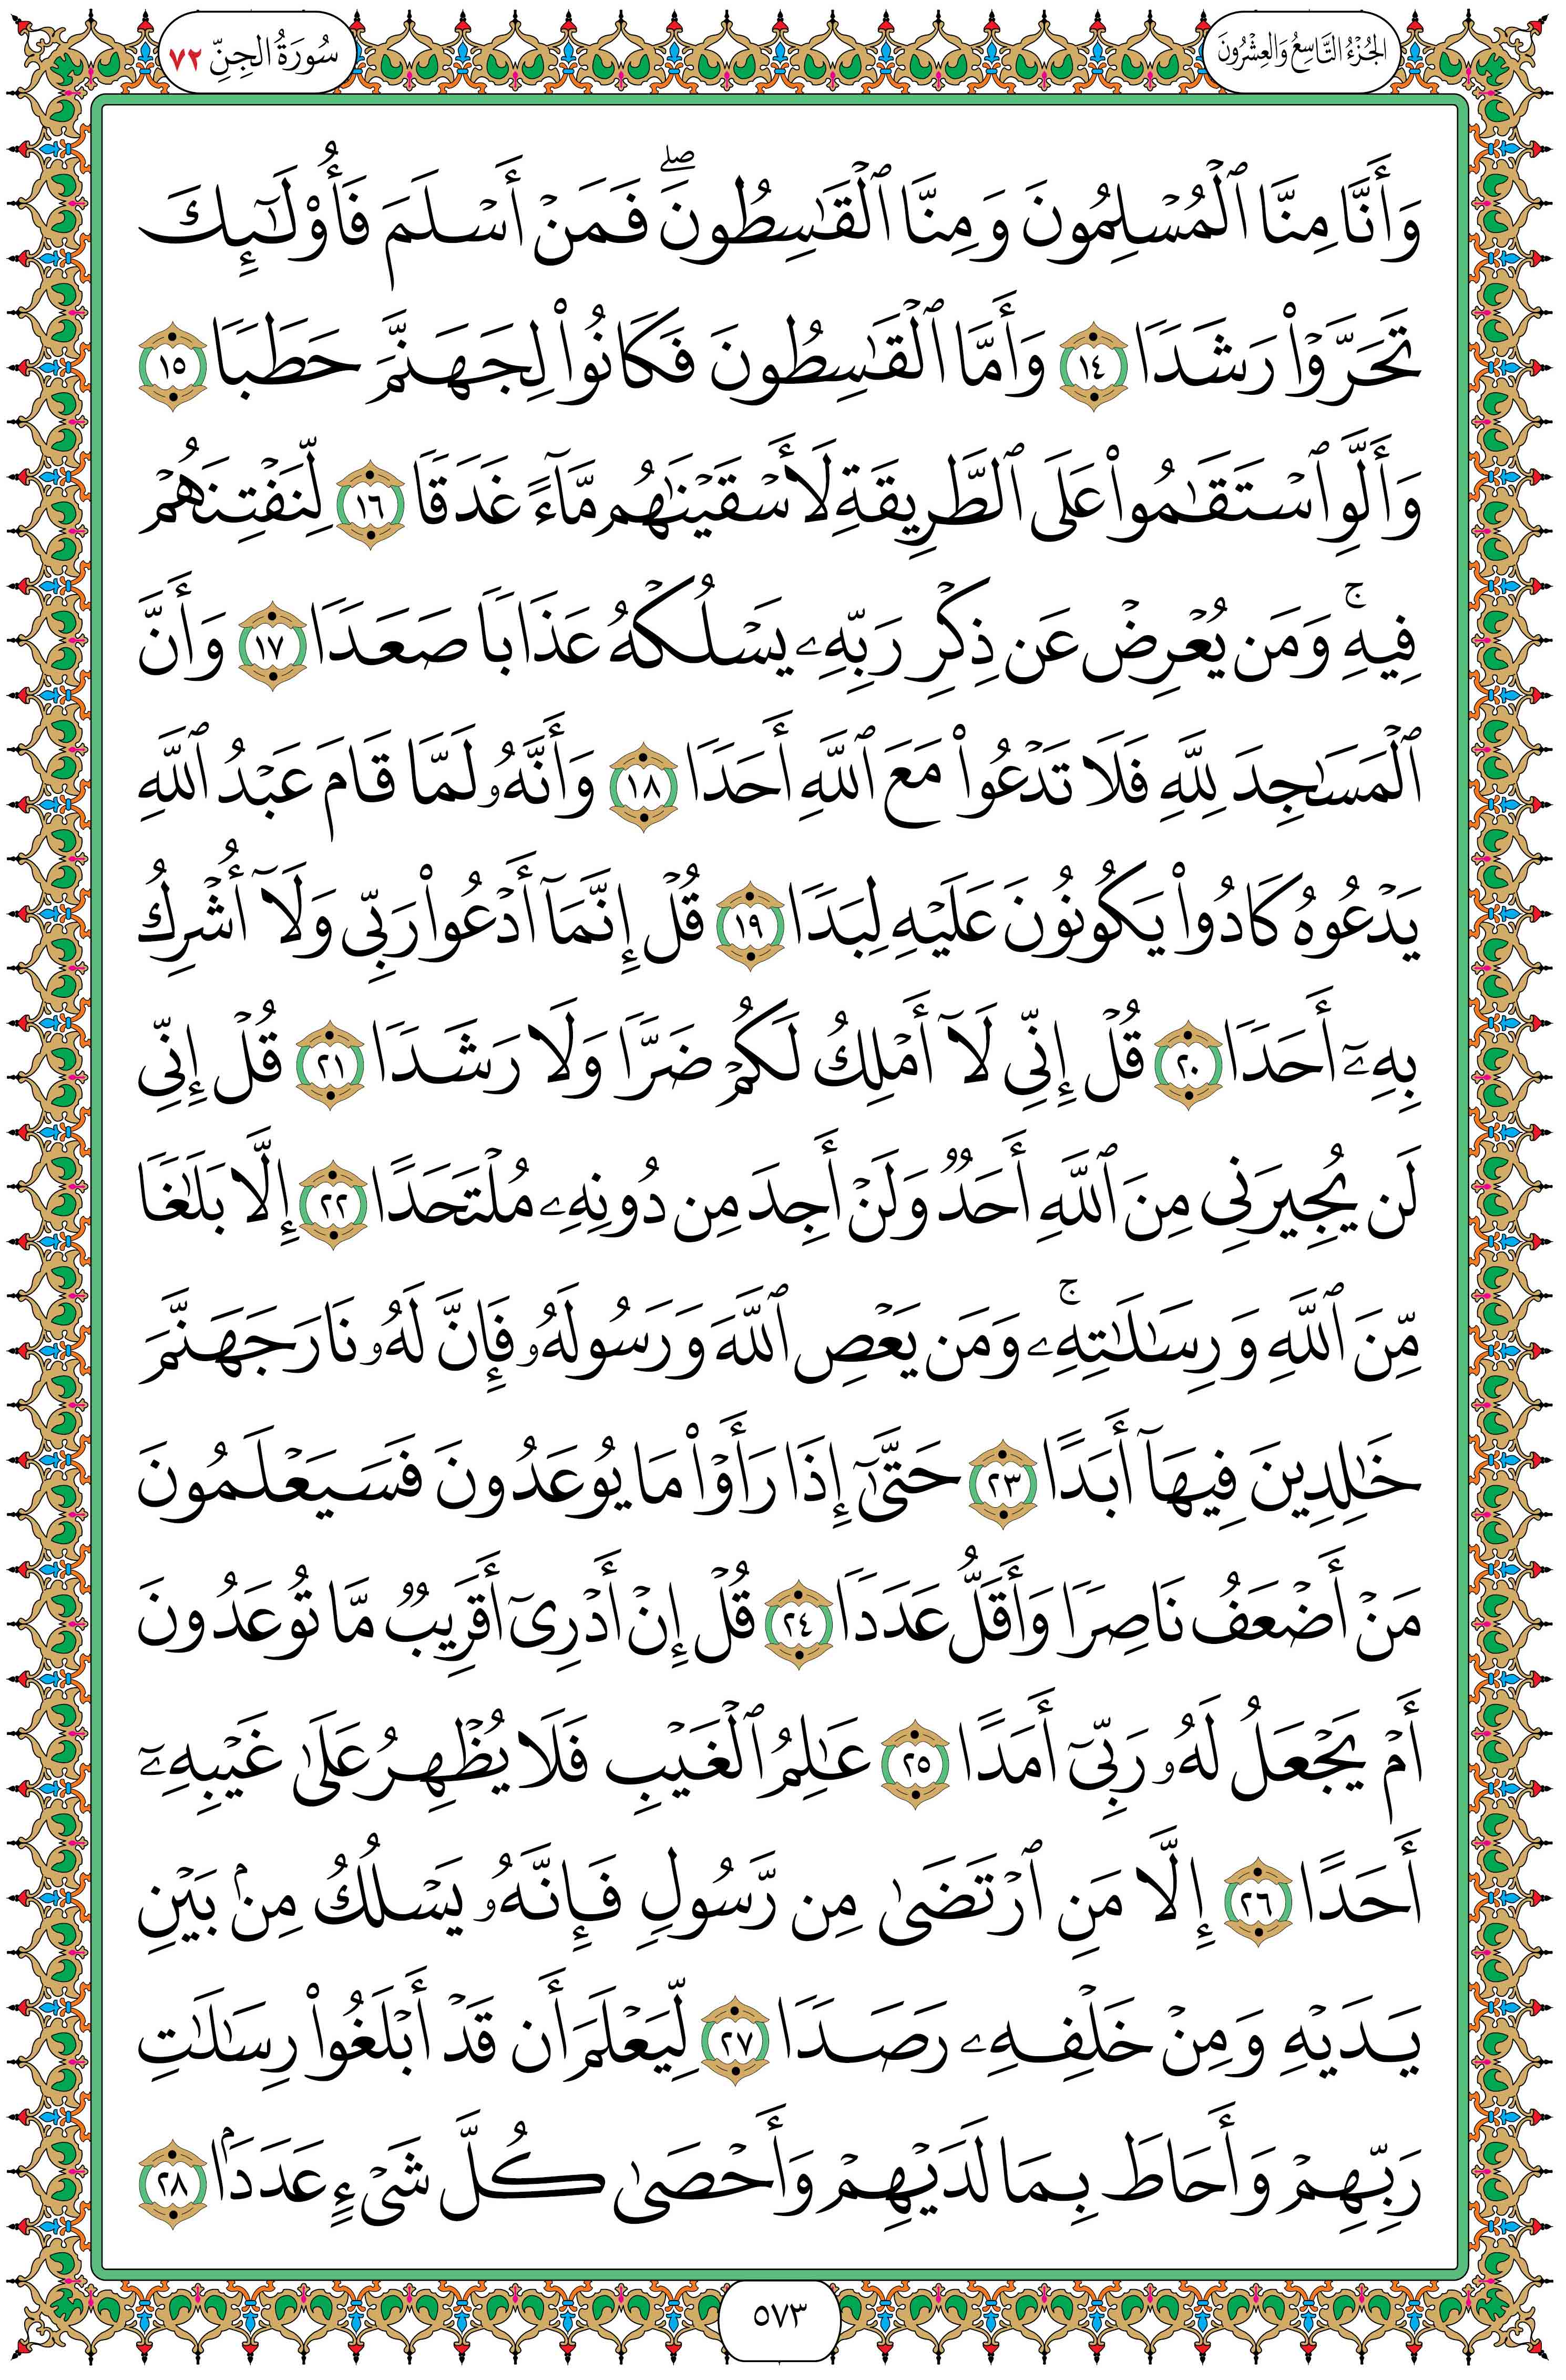 الجُزْءُ التَّاسِعُ وَالعِشْرُونَ
سُورَةُ الجِنِّ ٧٢
وَأَنَّا مِنَّا ٱلْمُسْلِمُونَ وَمِنَّا ٱلْقَٰسِطُونَۖ فَمَنْ أَسْلَمَ فَأُو۟لَٰٓئِكَ
تَحَرَّوْا۟ رَشَدًا ١٤ وَأَمَّا ٱلْقَٰسِطُونَ فَكَانُوا۟ لِجَهَنَّمَ حَطَبًا ١٥
وَأَلَّوِ ٱسْتَقَٰمُوا۟ عَلَى ٱلطَّرِيقَةِ لَأَسْقَيْنَٰهُم مَّآءً غَدَقًا ١٦ لِّنَفْتِنَهُمْ
فِيهِۚ وَمَن يُعْرِضْ عَن ذِكْرِ رَبِّهِۦ يَسْلُكْهُ عَذَابًا صَعَدًا ١٧ وَأَنَّ
ٱلْمَسَٰجِدَ لِلَّهِ فَلَا تَدْعُوا۟ مَعَ ٱللَّهِ أَحَدًا ١٨ وَأَنَّهُۥ لَمَّا قَامَ عَبْدُ ٱللَّهِ
يَدْعُوهُ كَادُوا۟ يَكُونُونَ عَلَيْهِ لِبَدًا ١٩ قُلْ إِنَّمَآ أَدْعُوا۟ رَبِّى وَلَآ أُشْرِكُ
بِهِۦٓ أَحَدًا ٢٠ قُلْ إِنِّى لَآ أَمْلِكُ لَكُمْ ضَرًّا وَلَا رَشَدًا ٢١ قُلْ إِنِّى
لَن يُجِيرَنِى مِنَ ٱللَّهِ أَحَدٌ وَلَنْ أَجِدَ مِن دُونِهِۦ مُلْتَحَدًا ٢٢ إِلَّا بَلَٰغًا
مِّنَ ٱللَّهِ وَرِسَٰلَٰتِهِۦۚ وَمَن يَعْصِ ٱللَّهَ وَرَسُولَهُۥ فَإِنَّ لَهُۥ نَارَ جَهَنَّمَ
خَٰلِدِينَ فِيهَآ أَبَدًا ٢٣ حَتَّىٰٓ إِذَا رَأَوْا۟ مَا يُوعَدُونَ فَسَيَعْلَمُونَ
مَنْ أَضْعَفُ نَاصِرًا وَأَقَلُّ عَدَدًا ٢٤ قُلْ إِنْ أَدْرِىٓ أَقَرِيبٌ مَّا تُوعَدُونَ
أَمْ يَجْعَلُ لَهُۥ رَبِّىٓ أَمَدًا ٢٥ عَٰلِمُ ٱلْغَيْبِ فَلَا يُظْهِرُ عَلَىٰ غَيْبِهِۦٓ
أَحَدًا ٢٦ إِلَّا مَنِ ٱرْتَضَىٰ مِن رَّسُولٍ فَإِنَّهُۥ يَسْلُكُ مِنۢ بَيْنِ
يَدَيْهِ وَمِنْ خَلْفِهِۦ رَصَدًا ٢٧ لِّيَعْلَمَ أَن قَدْ أَبْلَغُوا۟ رِسَٰلَٰتِ
رَبِّهِمْ وَأَحَاطَ بِمَا لَدَيْهِمْ وَأَحْصَىٰ كُلَّ شَىْءٍ عَدَدًۢا ٢٨
٥٧٣